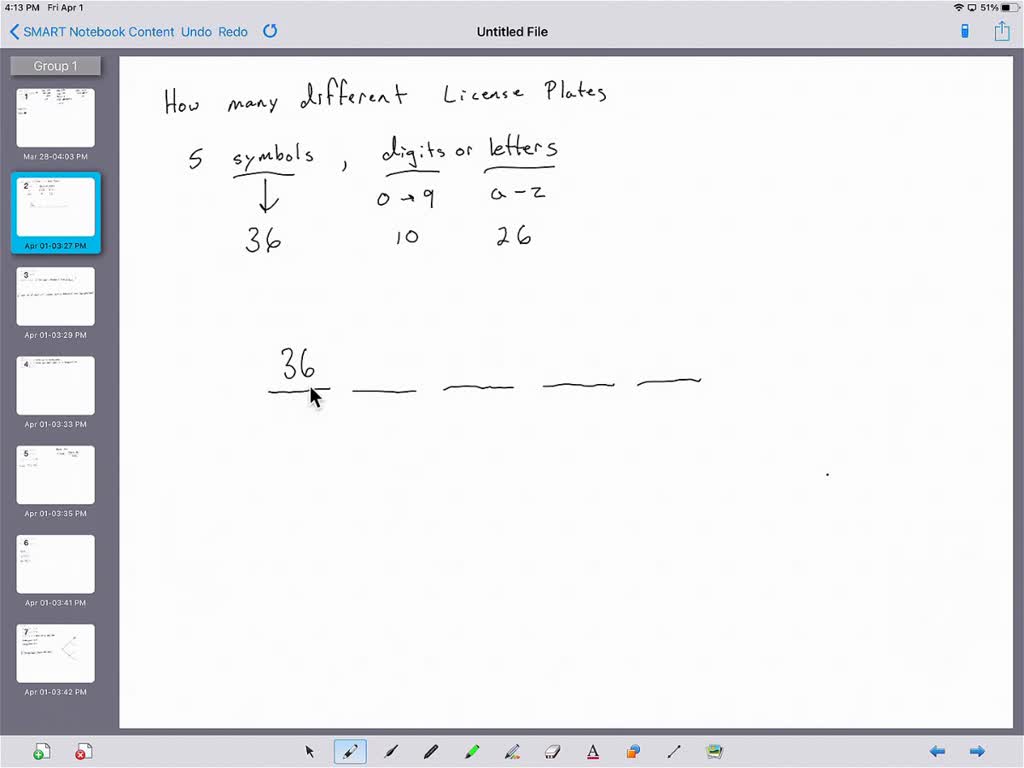 4:13 PM Fri Apr 1
51%
SMART Notebook Content Undo Redo
Untitled File
Group 1
1
Mar 28-04:03 PM
2
Apr 01-03:27 PM
3
Apr 01-03:29 PM
4
Apr 01-03:33 PM
5
Apr 01-03:35 PM
6
Apr 01-03:41 PM
7
Apr 01-03:42 PM
How many different License Plates
5 symbols , digits or letters
0 → 9 a - z
36 10 26
36
A